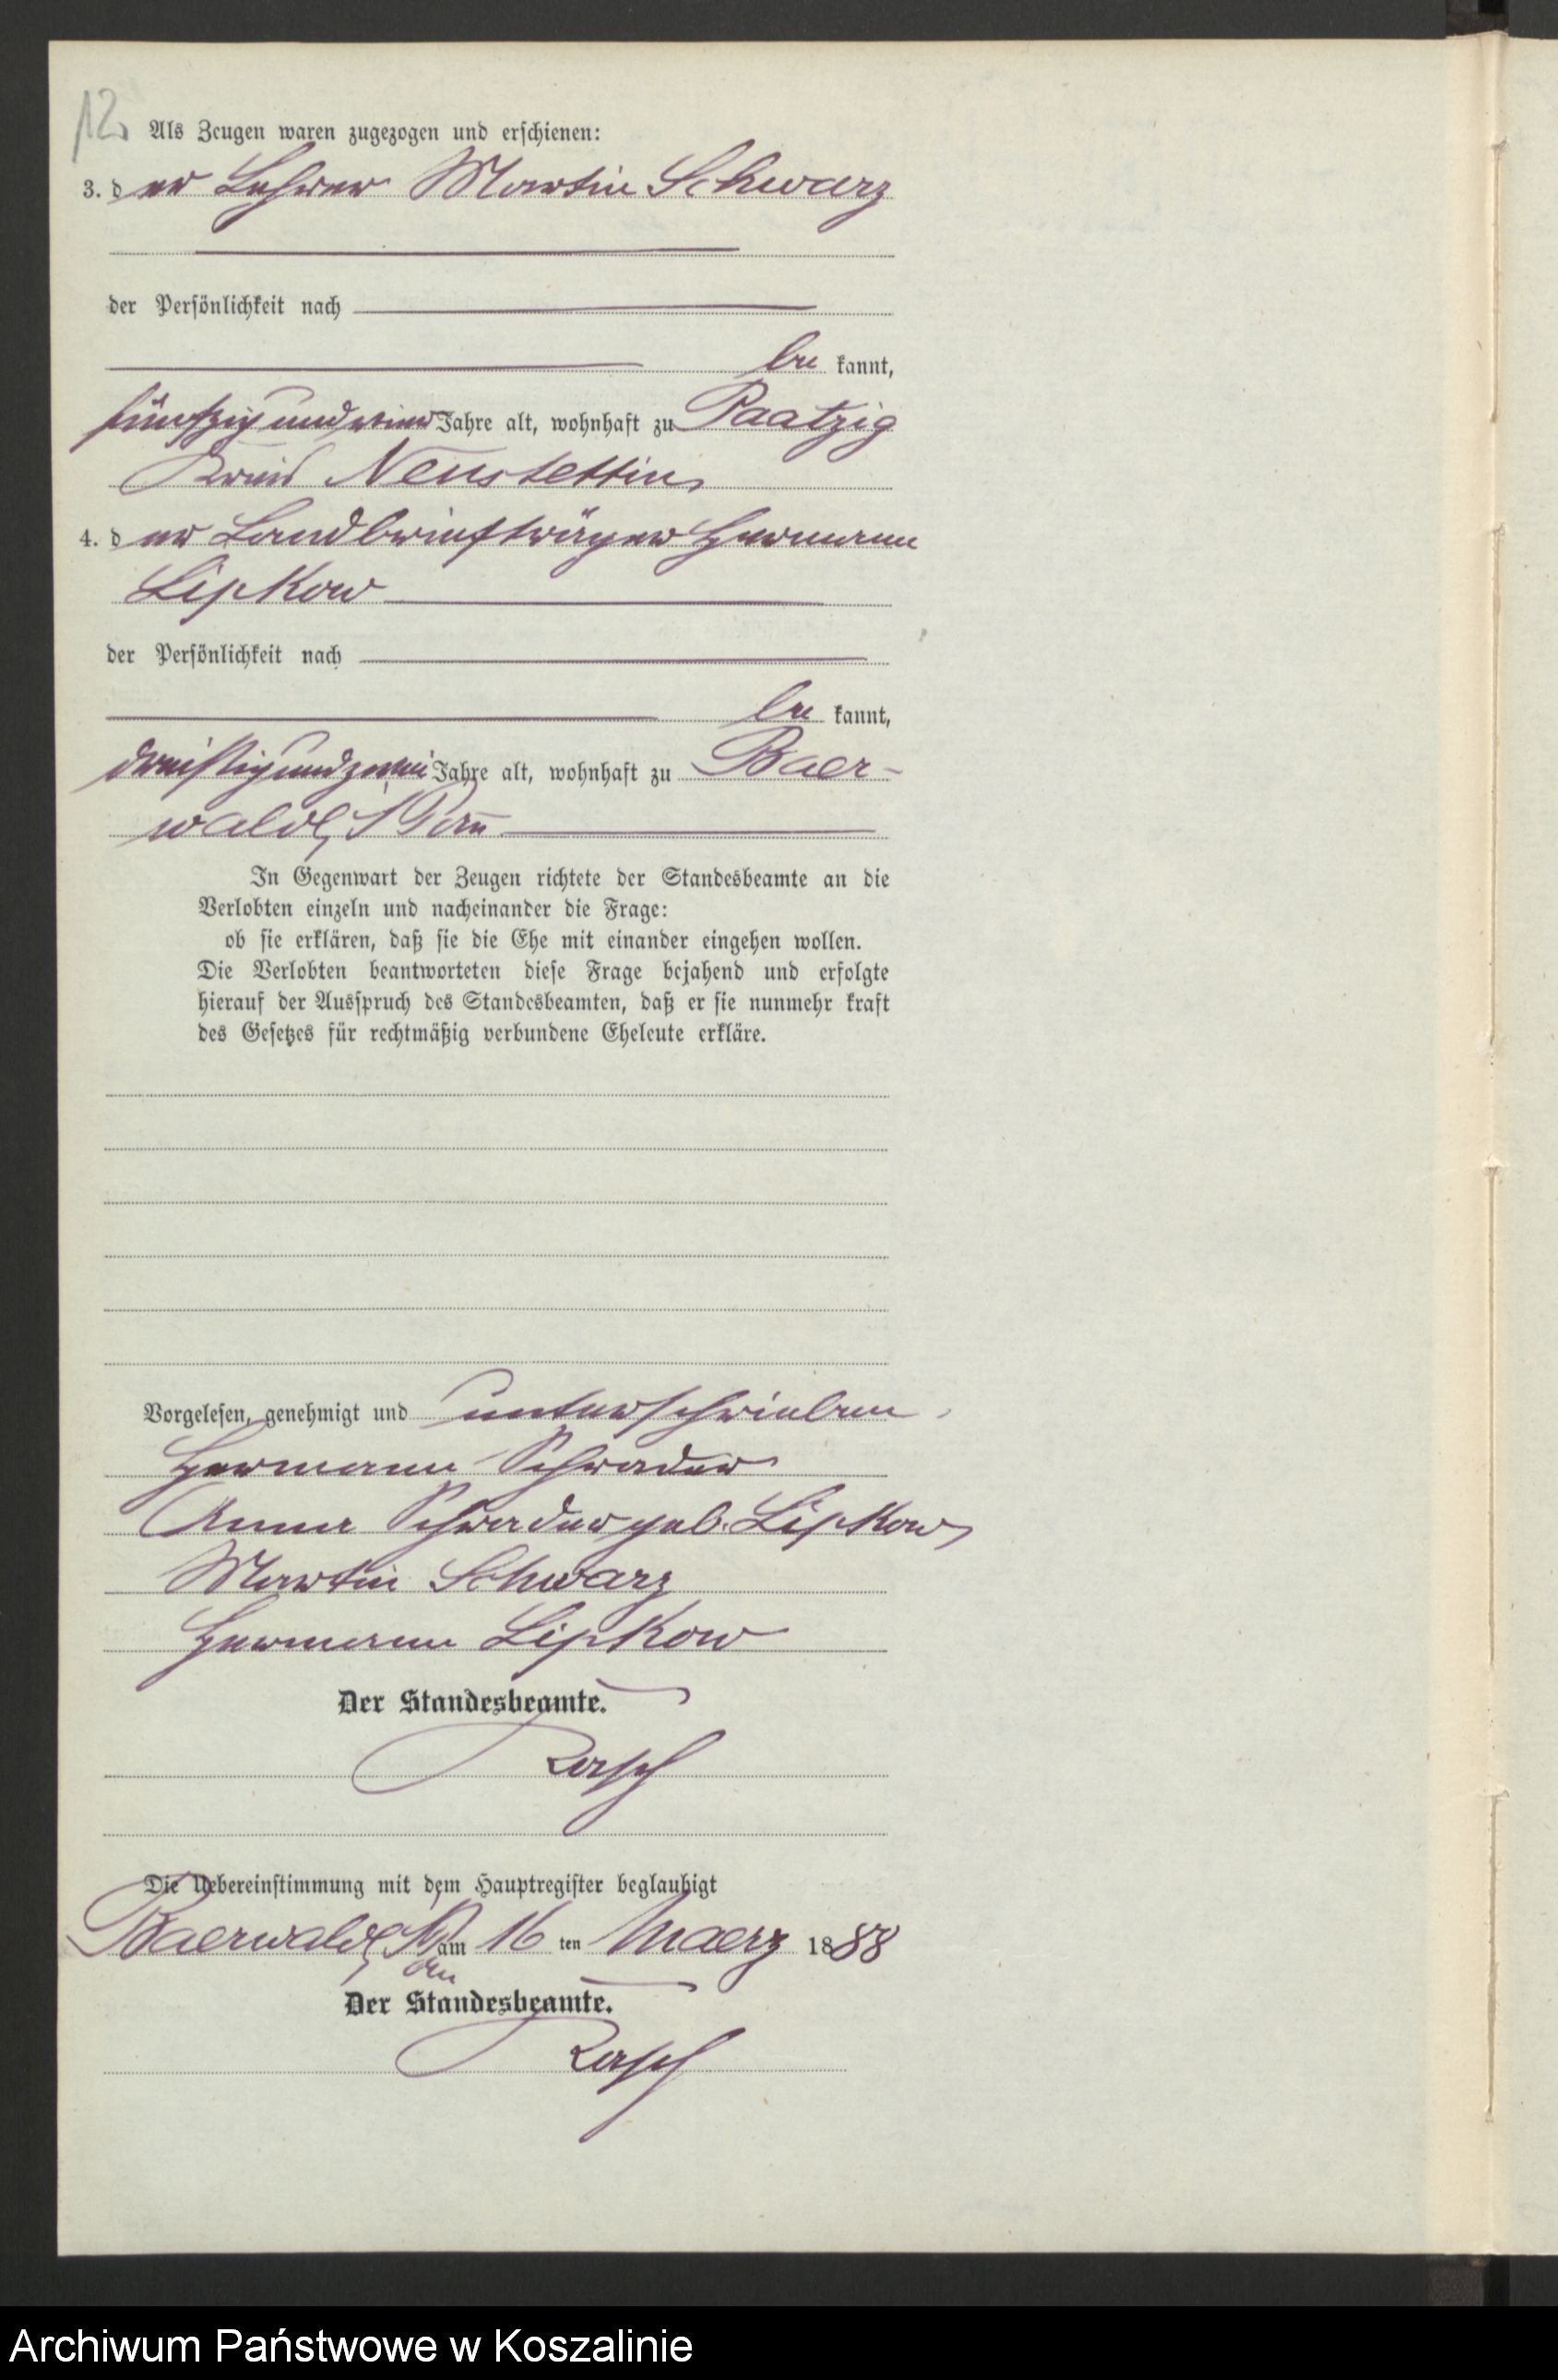 12.
Als Zeugen waren zugezogen und erschienen:
3. der Lehrer Martin Schwarz
der Persönlichkeit nach
be kannt,
fünfzig und Jahre alt, wohnhaft zu Paatzig
Kreis Neustettin
4. der Landbriefträger Hermann
Lipkow
der Persönlichkeit nach
be kannt,
dreißig und zwei Jahre alt, wohnhaft zu Baer-
walde, i/Pom
In Gegenwart der Zeugen richtete der Standesbeamte an die
Verlobten einzeln und nacheinander die Frage:
ob sie erklären, daß sie die Ehe mit einander eingehen wollen.
Die Verlobten beantworteten diese Frage bejahend und erfolgte
hierauf der Ausspruch des Standesbeamten, daß er sie nunmehr kraft
des Gesetzes für rechtmäßig verbundene Eheleute erkläre.
Vorgelesen, genehmigt und unterschrieben
Hermann Schrader
Anna Schrader geb. Lipkow
Martin Schwarz
Hermann Lipkow
Der Standesbeamte.
Rasch
Die Uebereinstimmung mit dem Hauptregister beglaubigt
Baerwalde, am 16 ten Maerz 1888
Der Standesbeamte.
Rasch
Archiwum Państwowe w Koszalinie